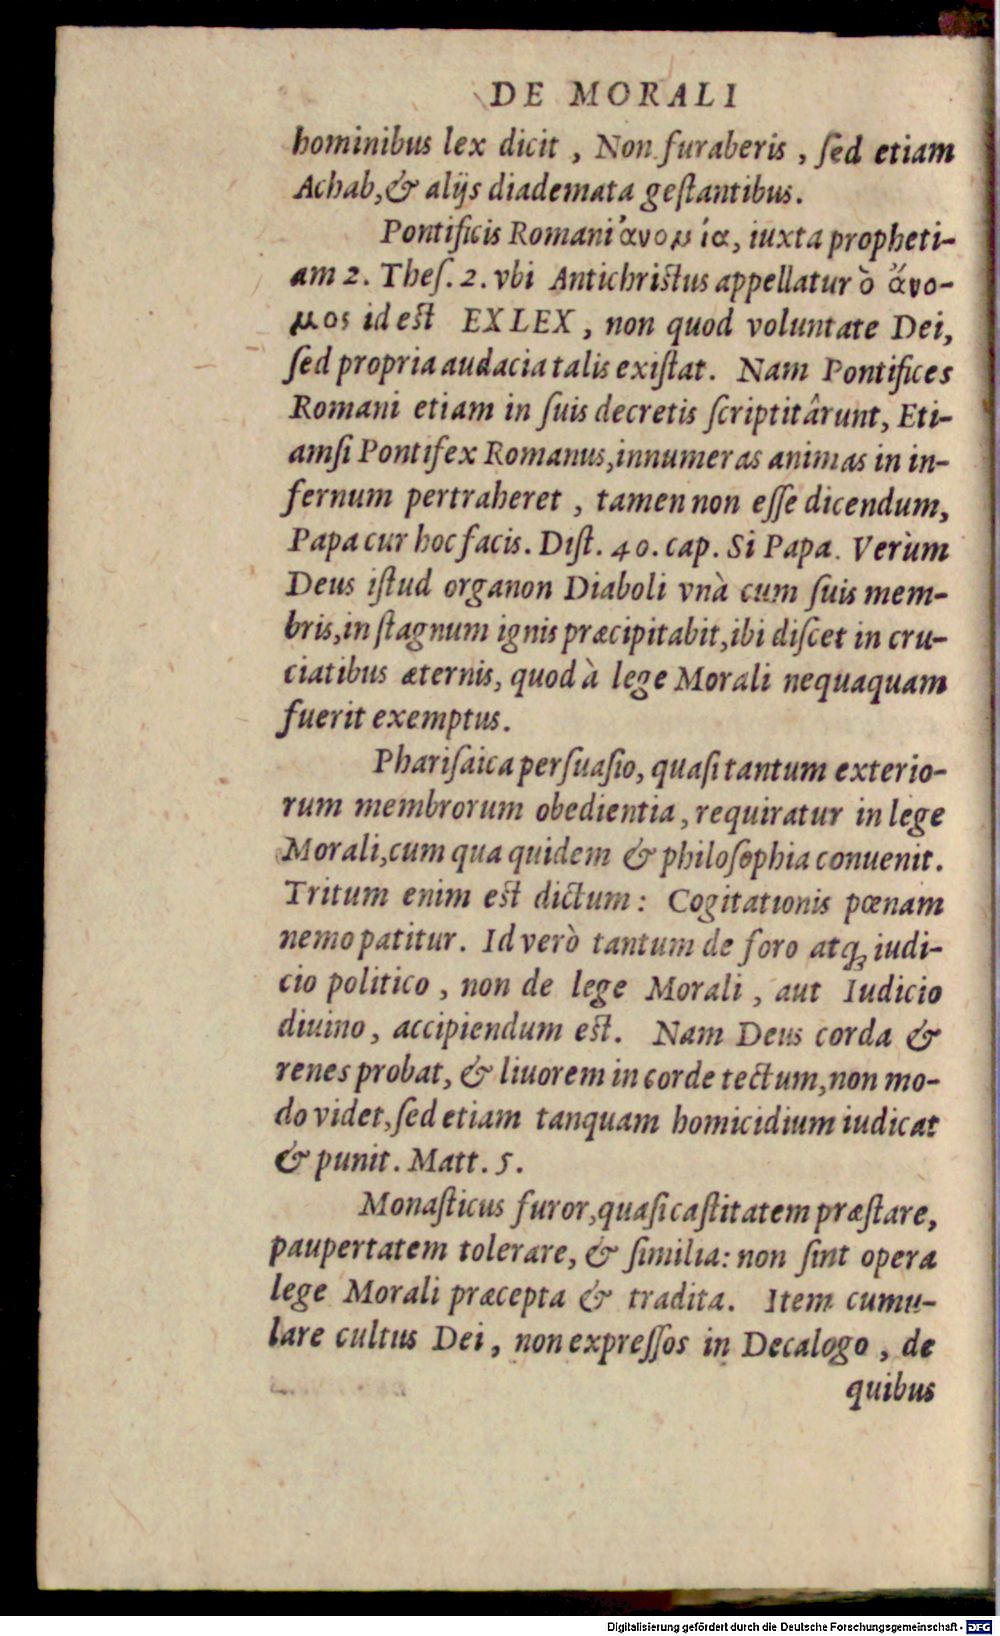 DE MORALI
hominibus lex dicit , Non furaberis , ſed etiam
Achab,& alijs diademata geſtantibus.
Pontificis Romani ἀνομία, iuxta propheti-
am 2. Theſ. 2. vbi Antichriſtus appellatur ὁ ἄνο-
μος id eſt EXLEX , non quod voluntate Dei,
ſed propria audacia talis exiſtat. Nam Pontifices
Romani etiam in ſuis decretis ſcriptitârunt, Eti-
amſi Pontifex Romanus,innumeras animas in in-
fernum pertraheret , tamen non eſſe dicendum,
Papa cur hoc facis. Diſt. 40. cap. Si Papa. Verùm
Deus iſtud organon Diaboli vnà cum ſuis mem-
bris,in ſtagnum ignis præcipitabit,ibi diſcet in cru-
ciatibus æternis, quod à lege Morali nequaquam
fuerit exemptus.
Phariſaica perſuaſio, quaſi tantum exterio-
rum membrorum obedientia, requiratur in lege
Morali,cum qua quidem & philoſophia conuenit.
Tritum enim eſt dictum: Cogitationis pœnam
nemo patitur. Id verò tantum de foro atq; iudi-
cio politico , non de lege Morali , aut Iudicio
diuino, accipiendum eſt. Nam Deus corda &
renes probat, & liuorem in corde tectum,non mo-
do videt,ſed etiam tanquam homicidium iudicat
& punit. Matt. 5.
Monaſticus furor,quaſi caſtitatem præſtare,
paupertatem tolerare, & ſimilia: non ſint opera
lege Morali præcepta & tradita. Item cumu-
lare cultus Dei , non expreſſos in Decalogo , de
quibus
Digitalisierung gefördert durch die Deutsche Forschungsgemeinschaft - DFG